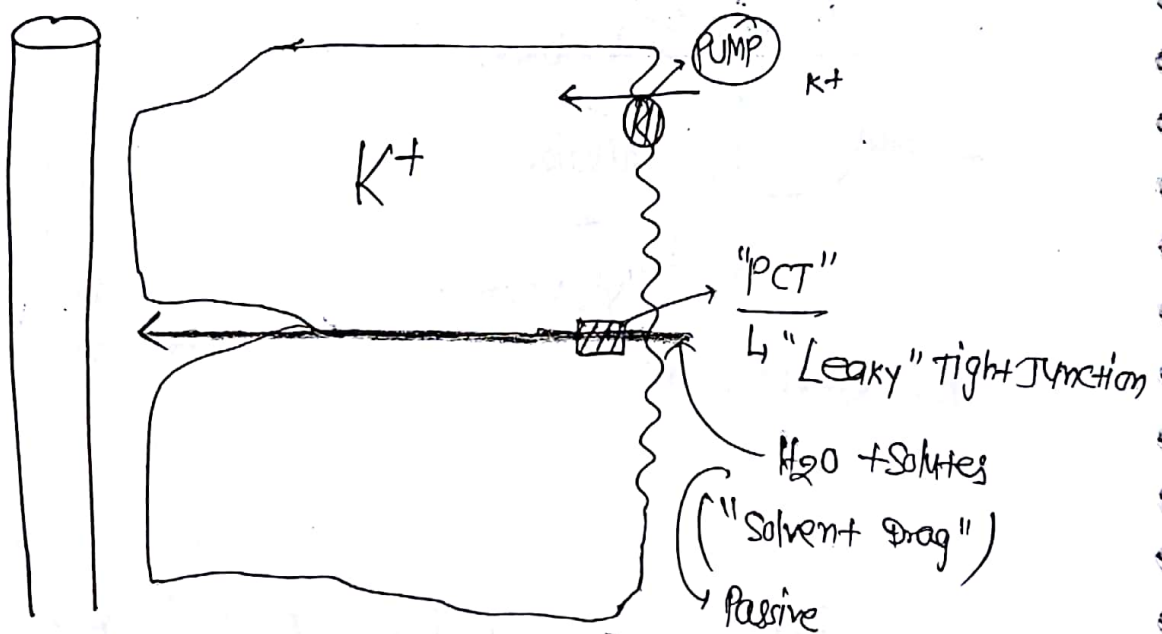 PUMP
K+
K+
"PCT"
↳ "Leaky" Tight Junction
H2O + Solutes
("Solvent Drag")
Passive